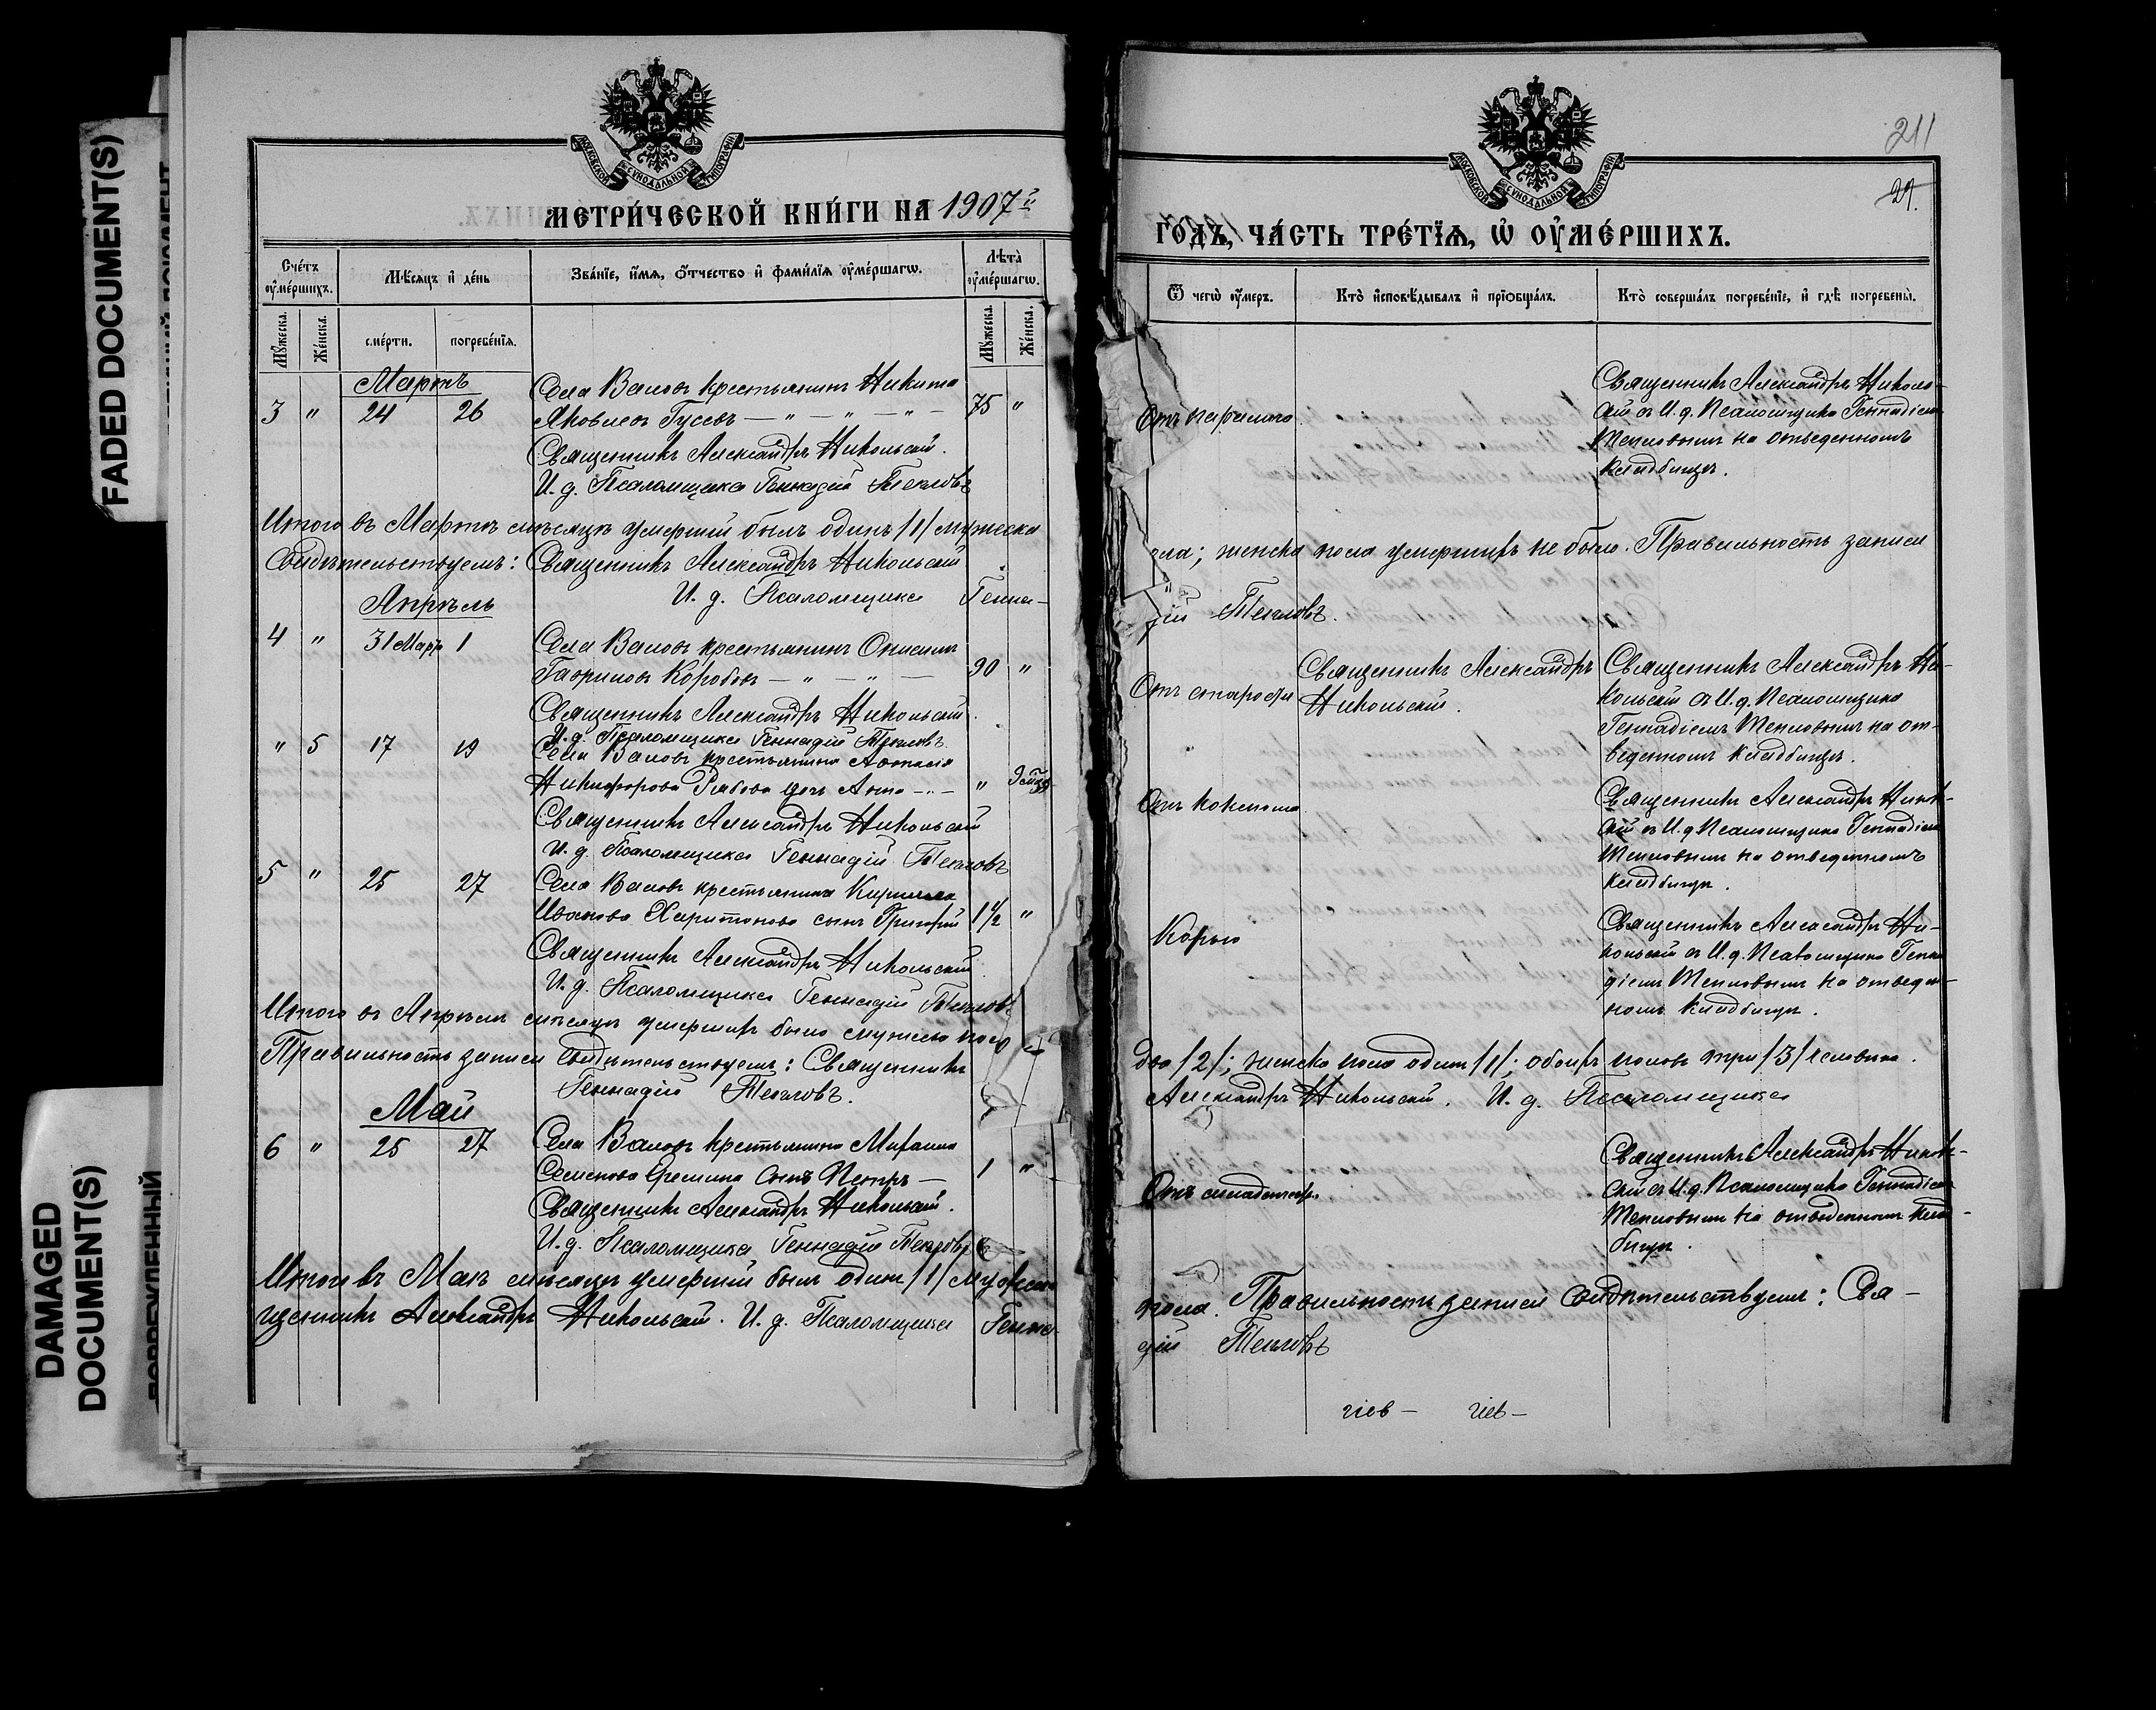 FADED DOCUMENT(S)
DAMAGED
DOCUMENT(S)
МОСКОВСКОЙ СѴНОДАЛЬНОЙ ТИПОГРАФІИ
МЕТРИ́ЧЕСКОЙ КНИ́ГИ НА 1907й
Сче́тъ ᲂу҆ме́ршихъ.
Мѣ́сяцъ и҆ де́нь
Зва́нїе, и҆́мѧ, ѻ҆́тчество и҆ фами́лїѧ ᲂу҆ме́ршагѡ.
Лѣ́та ᲂу҆ме́ршагѡ.
Мꙋ́жеска. Же́нска. сме́рти. погребе́нїѧ. Мꙋ́жеска. Же́нска.
Мартъ
Села Валовъ крестьянинъ Никита
3 " 24 26 Яковлевъ Гусевъ — " — " — " — 75 "
Священникъ Александръ Никольскій.
И. д. Псаломщика Геннадій Тепловъ
Итого въ Мартѣ мѣсяцѣ умершій былъ одинъ /1/ мужеска
Свидѣтельствуемъ: Священникъ Александръ Никольскій
И. д. Псаломщика Генна-
Апрѣль
4 " 31 Марта 1 Села Валовъ крестьянинъ Онисимъ
Гавриловъ Коробовъ — " — " — 90 "
Священникъ Александръ Никольскій.
И. д. Псаломщика Геннадій Тепловъ.
" 5 17 19 Села Валовъ крестьянина
Никифорова Рябова дочь Анна — " — "
Священникъ Александръ Никольскій
И. д. Псаломщика Геннадій Тепловъ
5 " 25 27 Села Валовъ крестьянина Кирилла
Иванова Харитонова сынъ Григорій 1½ "
Священникъ Александръ Никольскій.
И. д. Псаломщика Геннадій Тепловъ
Итого въ Апрѣлѣ мѣсяцѣ умершихъ было мужска пола
Правильность записи свидѣтельствуемъ: Священникъ
Геннадій Тепловъ.
Май
6 " 25 27 Села Валовъ крестьянина Михаила
Семенова Еремина сынъ Петръ — 1 "
Священникъ Александръ Никольскій.
И. д. Псаломщика Геннадій Тепловъ
Итого въ Маѣ мѣсяцѣ умершій былъ одинъ /1/ мужеска
щенникъ Александръ Никольскій. И. д. Псаломщика Генна-
211
МОСКОВСКОЙ СѴНОДАЛЬНОЙ ТИПОГРАФІИ
ГО́ДЪ, ЧА́СТЬ ТРЕ́ТЇѦ, Ѡ҆ ОУ҆МЕ́РШИХЪ.
Ѿ чегѡ̀ ᲂу҆́меръ.
Кто̀ и҆сповѣ́дывалъ и҆ прїѻбща́лъ.
Кто̀ соверша́лъ погребе́нїе, и҆ гдѣ̀ погребены̀.
Отъ паралича
Священникъ Александръ Николь-
скій съ И. д. Псаломщика Геннадіемъ
Тепловымъ на отведенномъ
кладбищѣ.
пола; женска пола умершихъ не было. Правильность записи
дій Тепловъ.
Отъ старости
Священникъ Александръ
Никольскій.
Священникъ Александръ Ни-
кольскій съ И. д. Псаломщика
Геннадіемъ Тепловымъ на от-
веденномъ кладбищѣ.
Отъ коклюша
Священникъ Александръ Николь-
скій съ И. д. Псаломщика Геннадіемъ
Тепловымъ на отведенномъ
кладбищѣ.
Корью
Священникъ Александръ Ни-
кольскій съ И. д. Псаломщика Генна
діемъ Тепловымъ на отведен-
номъ кладбищѣ.
два /2/; женска пола одинъ /1/; обоихъ половъ три /3/ человѣка.
Александръ Никольскій. И. д. Псаломщика
Отъ слабости
Священникъ Александръ Николь-
скій съ И. д. Псаломщика Геннадіемъ
Тепловымъ на отведенномъ клад-
бищѣ.
пола. Правильность записи свидѣтельствуемъ: Свя-
дій Тепловъ